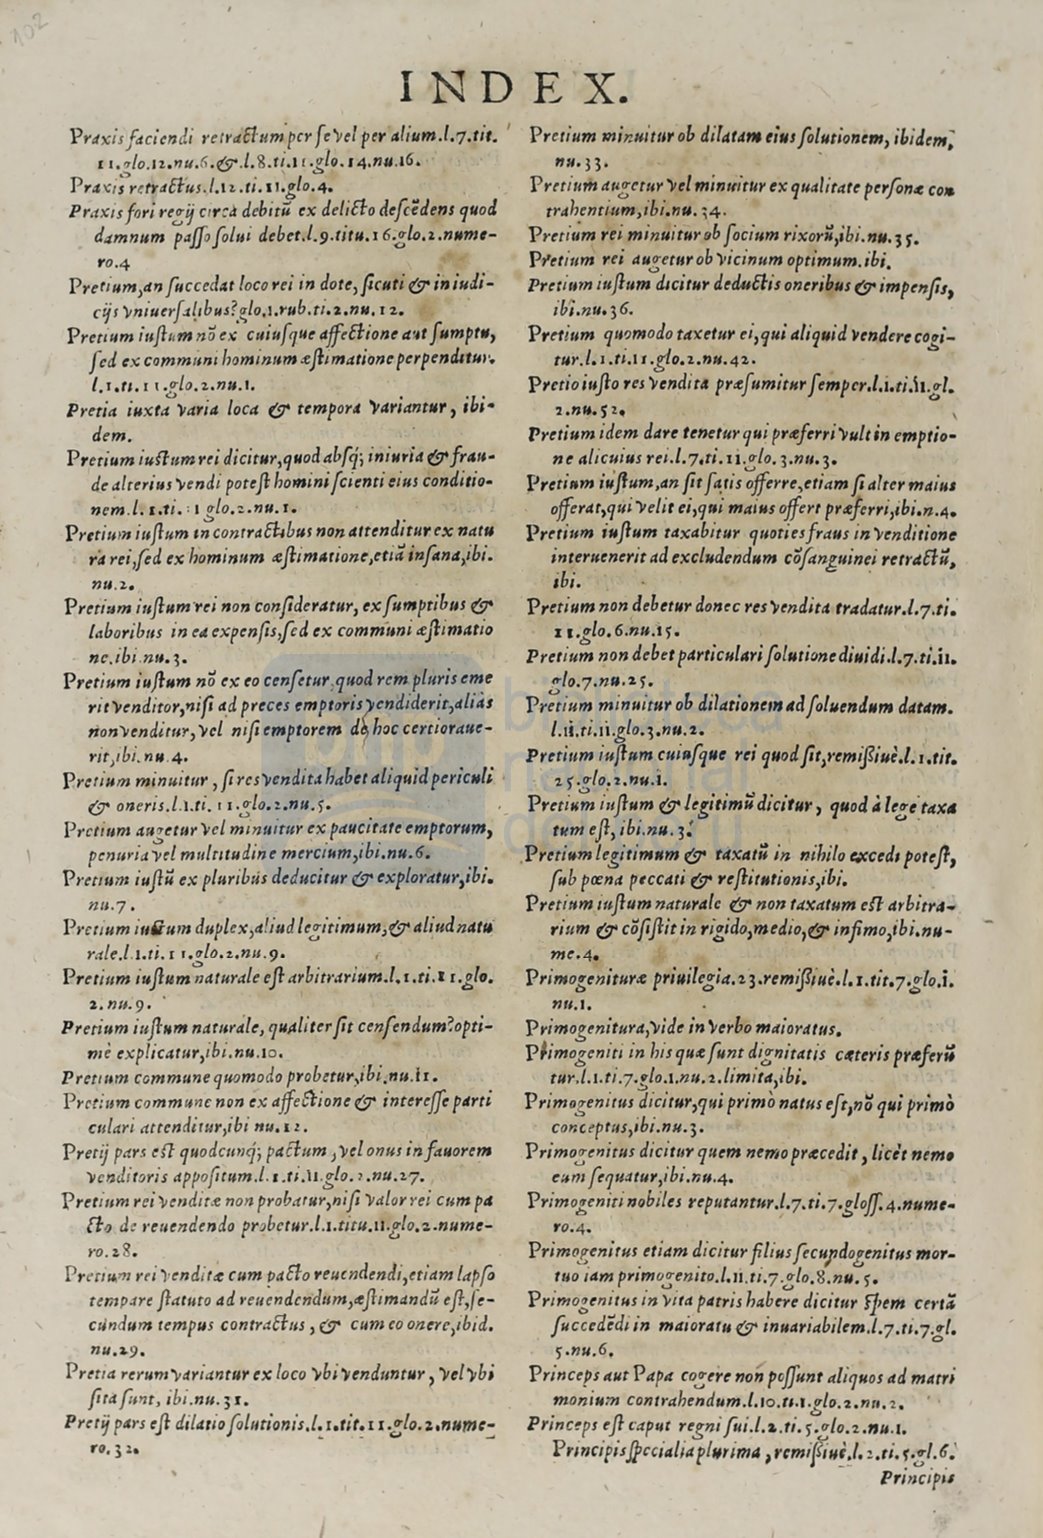 102
INDEX.
Praxis faciendi retractum per se vel per alium.l.7.tit.
11.glo.12.nu.6.&.l.8.ti.11.glo.14.nu.16.
Praxis retractus.l.12.ti.11.glo.4.
Praxis fori regij circà debitũ ex delicto descẽdens quod
damnum passo solui debet.l.9.titu.16.glo.2.nume-
ro.4
Pretium,an succedat loco rei in dote, sicuti & in iudi-
cijs vniuersalibus?glo.1.rub.ti.2.nu.12.
Pretium iustum nõ ex cuiusque affectione aut sumptu,
sed ex communi hominum æstimatione perpenditur.
l.1.ti.11.glo.2.nu.1.
Pretia iuxta varia loca & tempora variantur, ibi-
dem.
Pretium iustum rei dicitur,quod absq; iniuria & frau-
de alterius vendi potest homini scienti eius conditio-
nem.l.1.ti.11 glo.2.nu.1.
Pretium iustum in contractibus non attenditur ex natu
ra rei,sed ex hominum æstimatione,etiã insana,ibi.
nu.2.
Pretium iustum rei non consideratur, ex sumptibus &
laboribus in ea expensis,sed ex communi æstimatio
ne.ibi.nu.3.
Pretium iustum nõ ex eo censetur,quod rem pluris eme
rit venditor,nisi ad preces emptoris vendiderit,aliàs
non venditur,vel nisi emptorem de hoc certioraue-
rit,ibi.nu.4.
Pretium minuitur, si res vendita habet aliquid periculi
& oneris.l.1.ti.11.glo.2.nu.5.
Pretium augetur vel minuitur ex paucitate emptorum,
penuria vel multitudine mercium,ibi.nu.6.
Pretium iustũ ex pluribus deducitur & exploratur,ibi.
nu.7.
Pretium iustum duplex,aliud legitimum,& aliud natu
rale.l.1.ti.11.glo.2.nu.9.
Pretium iustum naturale est arbitrarium.l.1.ti.11.glo.
2.nu.9.
Pretium iustum naturale, qualiter sit censendum?opti-
mè explicatur,ibi.nu.10.
Pretium commune quomodo probetur,ibi.nu.11.
Pretium commune non ex affectione & interesse parti
culari attenditur,ibi nu.12.
Pretij pars est quodcunq; pactum, vel onus in fauorem
venditoris appositum.l.1.ti.11.glo.2.nu.27.
Pretium rei venditæ non probatur,nisi valor rei cum pa
cto de reuendendo probetur.l.1.titu.11.glo.2.nume-
ro.28.
Pretium rei venditæ cum pacto reuendendi,etiam lapso
tempare statuto ad reuendendum,æstimandũ est,se-
cundum tempus contractus, & cum eo onere,ibid.
nu.29.
Pretia rerum variantur ex loco vbi venduntur, vel vbi
sita sunt, ibi.nu.31.
Pretij pars est dilatio solutionis.l.1.tit.11.glo.2.nume-
ro.32.
Pretium minuitur ob dilatam eius solutionem, ibidem,
nu.33.
Pretium augetur vel minuitur ex qualitate personæ con
trahentium,ibi.nu.34.
Pretium rei minuitur ob socium rixorũ,ibi.nu.35.
Pretium rei augetur ob vicinum optimum.ibi.
Pretium iustum dicitur deductis oneribus & impensis,
ibi.nu.36.
Pretium quomodo taxetur ei,qui aliquid vendere cogi-
tur.l.1.ti.11.glo.2.nu.42.
Pretio iusto res vendita præsumitur semper.l.1.ti.11.gl.
2.nu.52.
Pretium idem dare tenetur qui præferri vult in emptio-
ne alicuius rei.l.7.ti.11.glo.3.nu.3.
Pretium iustum,an sit satis offerre,etiam si alter maius
offerat,qui velit ei,qui maius offert præferri,ibi.n.4.
Pretium iustum taxabitur quoties fraus in venditione
interuenerit ad excludendum cõsanguinei retractũ,
ibi.
Pretium non debetur donec res vendita tradatur.l.7.ti.
11.glo.6.nu.15.
Pretium non debet particulari solutione diuidi.l.7.ti.11.
glo.7.nu.25.
Pretium minuitur ob dilationem ad soluendum datam.
l.11.ti.11.glo.3.nu.2.
Pretium iustum cuiusque rei quod sit,remissiuè.l.1.tit.
25.glo.2.nu.1.
Pretium iustum & legitimũ dicitur, quod à lege taxa
tum est, ibi.nu.3.
Pretium legitimum & taxatũ in nihilo excedi potest,
sub pœna peccati & restitutionis,ibi.
Pretium iustum naturale & non taxatum est arbitra-
rium & cõsistit in rigido,medio,& infimo,ibi.nu-
me.4.
Primogenituræ priuilegia.23.remissiuè.l.1.tit.7.glo.1.
nu.1.
Primogenitura,vide in verbo maioratus.
Primogeniti in his quæ sunt dignitatis cæteris præferũ
tur.l.1.ti.7.glo.1.nu.2.limita,ibi.
Primogenitus dicitur,qui primò natus est,nõ qui primò
conceptus,ibi.nu.3.
Primogenitus dicitur quem nemo præcedit, licèt nemo
eum sequatur,ibi.nu.4.
Primogeniti nobiles reputantur.l.7.ti.7.gloss.4.nume-
ro.4.
Primogenitus etiam dicitur filius secundogenitus mor-
tuo iam primogenito.l.11.ti.7.glo.8.nu.5.
Primogenitus in vita patris habere dicitur spem certã
succedẽdi in maioratu & inuariabilem.l.7.ti.7.gl.
5.nu.6.
Princeps aut Papa cogere non possunt aliquos ad matri
monium contrahendum.l.10.ti.1.glo.2.nu.2.
Princeps est caput regni sui.l.2.ti.5.glo.2.nu.1.
Principis specialia plurima, remissiuè.l.2.ti.5.gl.6.
Principis